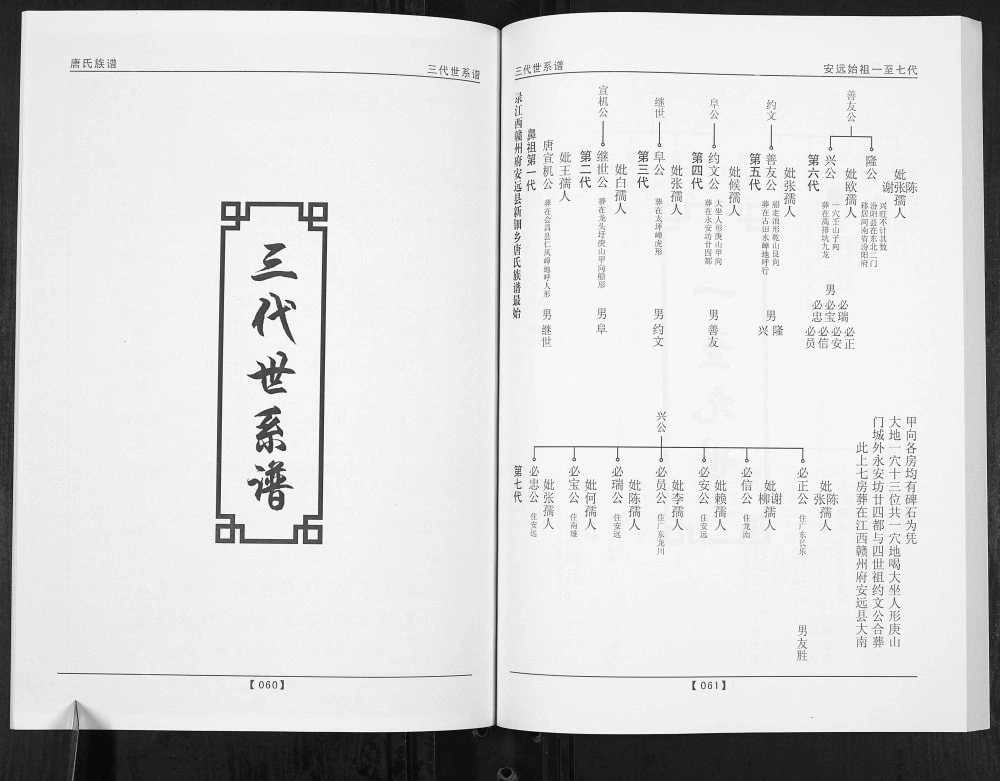 唐氏族谱
三代世系谱
三代世系谱
【060】
三代世系谱
安远始祖一至七代
录江西赣州府安远县新铏乡唐氏族谱最始
鼻祖第一代
唐宣机公
葬在会昌县仁风嶂地呼人形
妣王孺人
男
继世
宣机公
第二代
继世公
葬在龙头圩庚山甲向船形
妣白孺人
男
阜
继世
第三代
阜公
葬在太坪嶂虎形
妣张孺人
男
约文
阜公
第四代
约文公
葬在永安坊廿四都
大坐人形庚山甲向
妣候孺人
男
善友
约文
第五代
善友公
葬在古田水嶂地呼行
船走浪形乾山艮向
妣张孺人
男
兴
隆
善友公
第六代
兴公
葬在高排坑九龙
一穴壬山子向
妣欧孺人
男
必忠
必宝
必瑞
必员
必信
必安
必正
隆公
移居河南省汾阳府
汾阳县在东北二门
兴旺不计其数
妣张孺人
谢
陈
兴公
第七代
必忠公
住安远
妣张孺人
必宝公
住南雄
妣何孺人
必瑞公
住安远
妣陈孺人
必员公
住广东龙川
妣李孺人
必安公
住安远
妣赖孺人
必信公
住龙南
妣柳孺人
谢
必正公
住广东长乐
妣张孺人
陈
男友胜
此上七房葬在江西赣州府安远县大南
门城外永安坊廿四都与四世祖约文公合葬
大地一穴十三位共一穴地喝大坐人形庚山
甲向各房均有碑石为凭
【061】